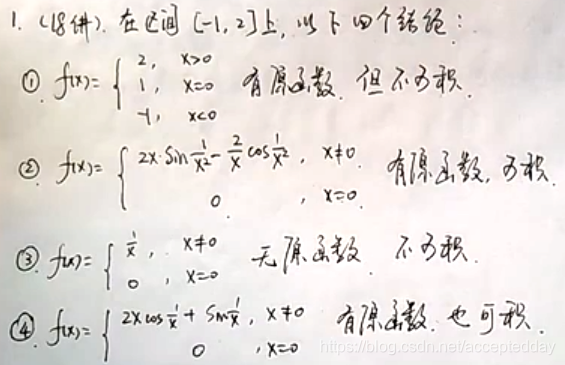 1. (18讲). 在区间 [-1, 2] 上, 以下四个结论:
① f(x) = { 2, x>0
1, x=0 有原函数. 但不可积.
-1, x<0
② f(x) = { 2x·sin 1/x² - 2/x cos 1/x², x≠0. 有原函数, 可积.
0, x=0.
③ f(x) = { 1/x, x≠0 无原函数. 不可积.
0, x=0
④ f(x) = { 2x cos 1/x + sin 1/x, x≠0 有原函数. 也可积.
0, x=0
https://blog.csdn.net/acceptedday